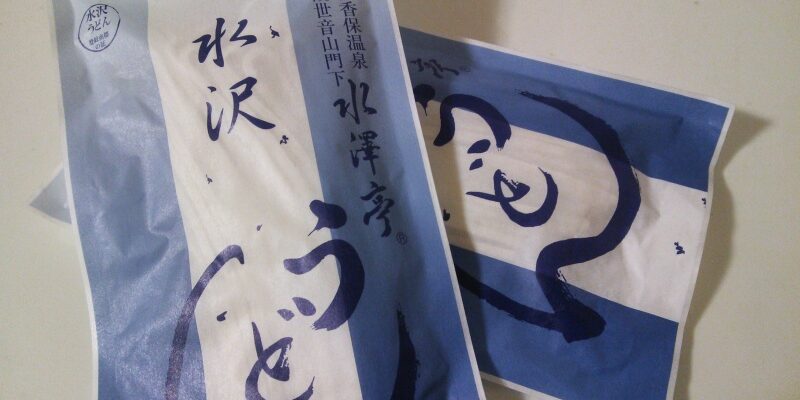 香保温泉
世音山門下
水澤亭®
水沢
うど
水沢
うどん
うど